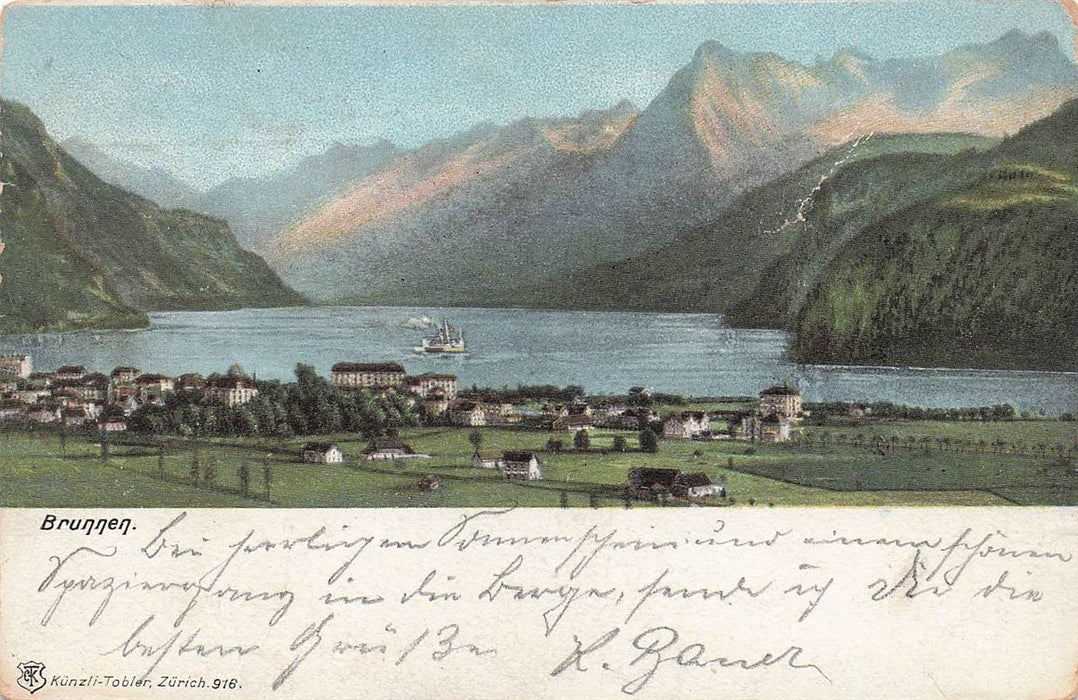 Brunnen.
Bei herrlichem Sonnenschein und einem schönen
Spaziergang in die Berge, sende ich die
besten Grüße
Künzli-Tobler, Zürich. 916.